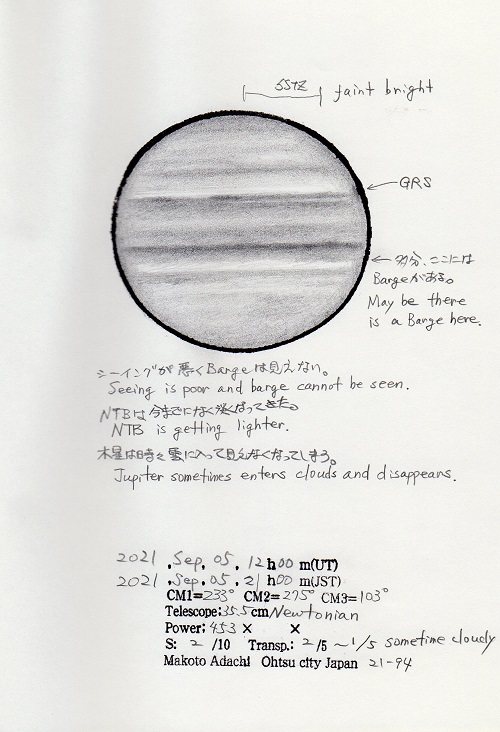 SSTZ faint bright
GRS
多分、ここには
Bargeがある。
May be there
is a Barge here.
シーイングが悪くBargeは見えない。
Seeing is poor and barge cannot be seen.
NTBは今までになく淡くなってきた。
NTB is getting lighter.
木星は時々雲に入って見えなくなってしまう。
Jupiter sometimes enters clouds and disappears.
2021 , Sep, 05 , 12 h00 m(UT)
2021 , Sep, 05 , 21 h00 m(JST)
CM1=233° CM2=275° CM3=103°
Telescope;35.5cm Newtonian
Power; 453 × ×
S: 2 /10 Transp.: 2 /5 ~ 1/5 sometime cloudy
Makoto Adachi Ohtsu city Japan 21-94